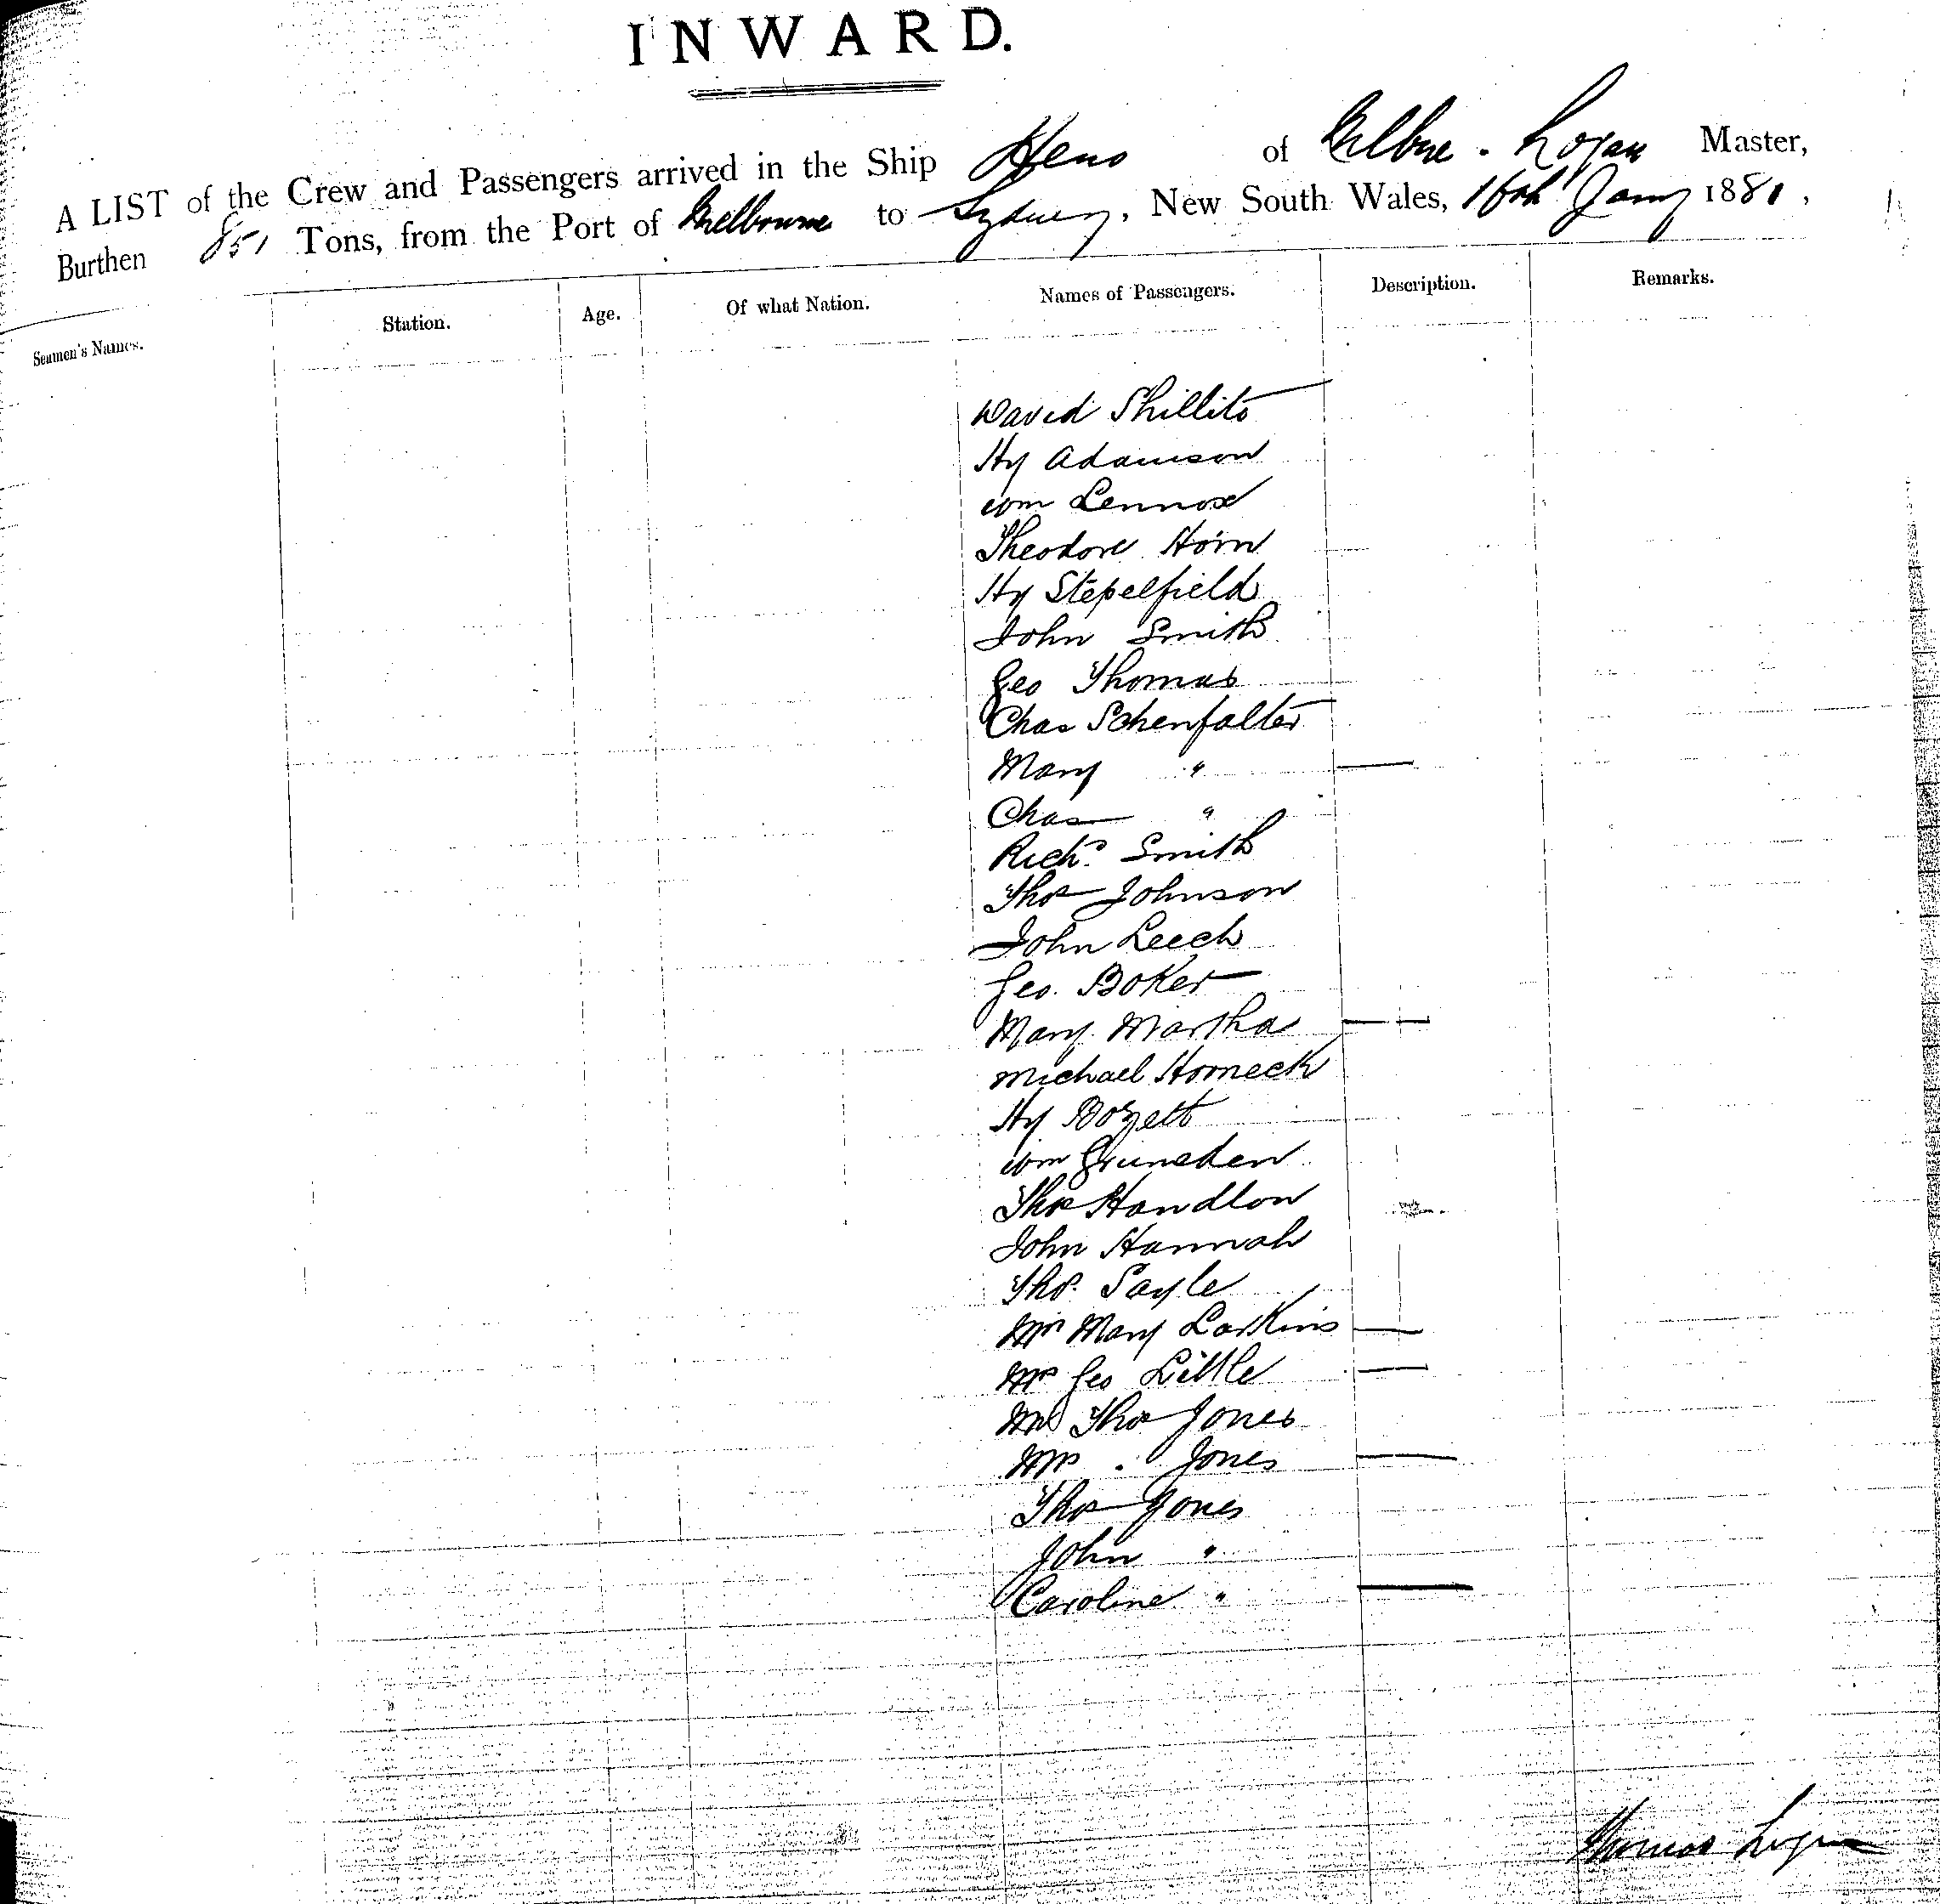 INWARD.
A LIST of the Crew and Passengers arrived in the Ship Hero of Melbne. Logan Master,
Burthen 851 Tons, from the Port of Melbourne to Sydney, New South Wales, 16th Jany 1881,
Seamen's Names. Station. Age. Of what Nation. Names of Passengers. Description. Remarks.
David Shillito
Hy Adamson
Wm Lennox
Theodore Horn
Hy Stepelfield
John Smith
Geo Thomas
Chas Schenfalter
Mary "
Chas "
Richd Smith
Thos Johnson
John Leech
Geo. Boker
Mary Martha
Michael Horneck
Hy Bozett
Wm Grunsden
Thos Handlon
John Hannah
Thos. Sayle
Mrs Mary Larkins
Mrs Geo Little
Mr Thos Jones
Mrs . Jones
Thos Jones
John "
Caroline "
Thomas Logan